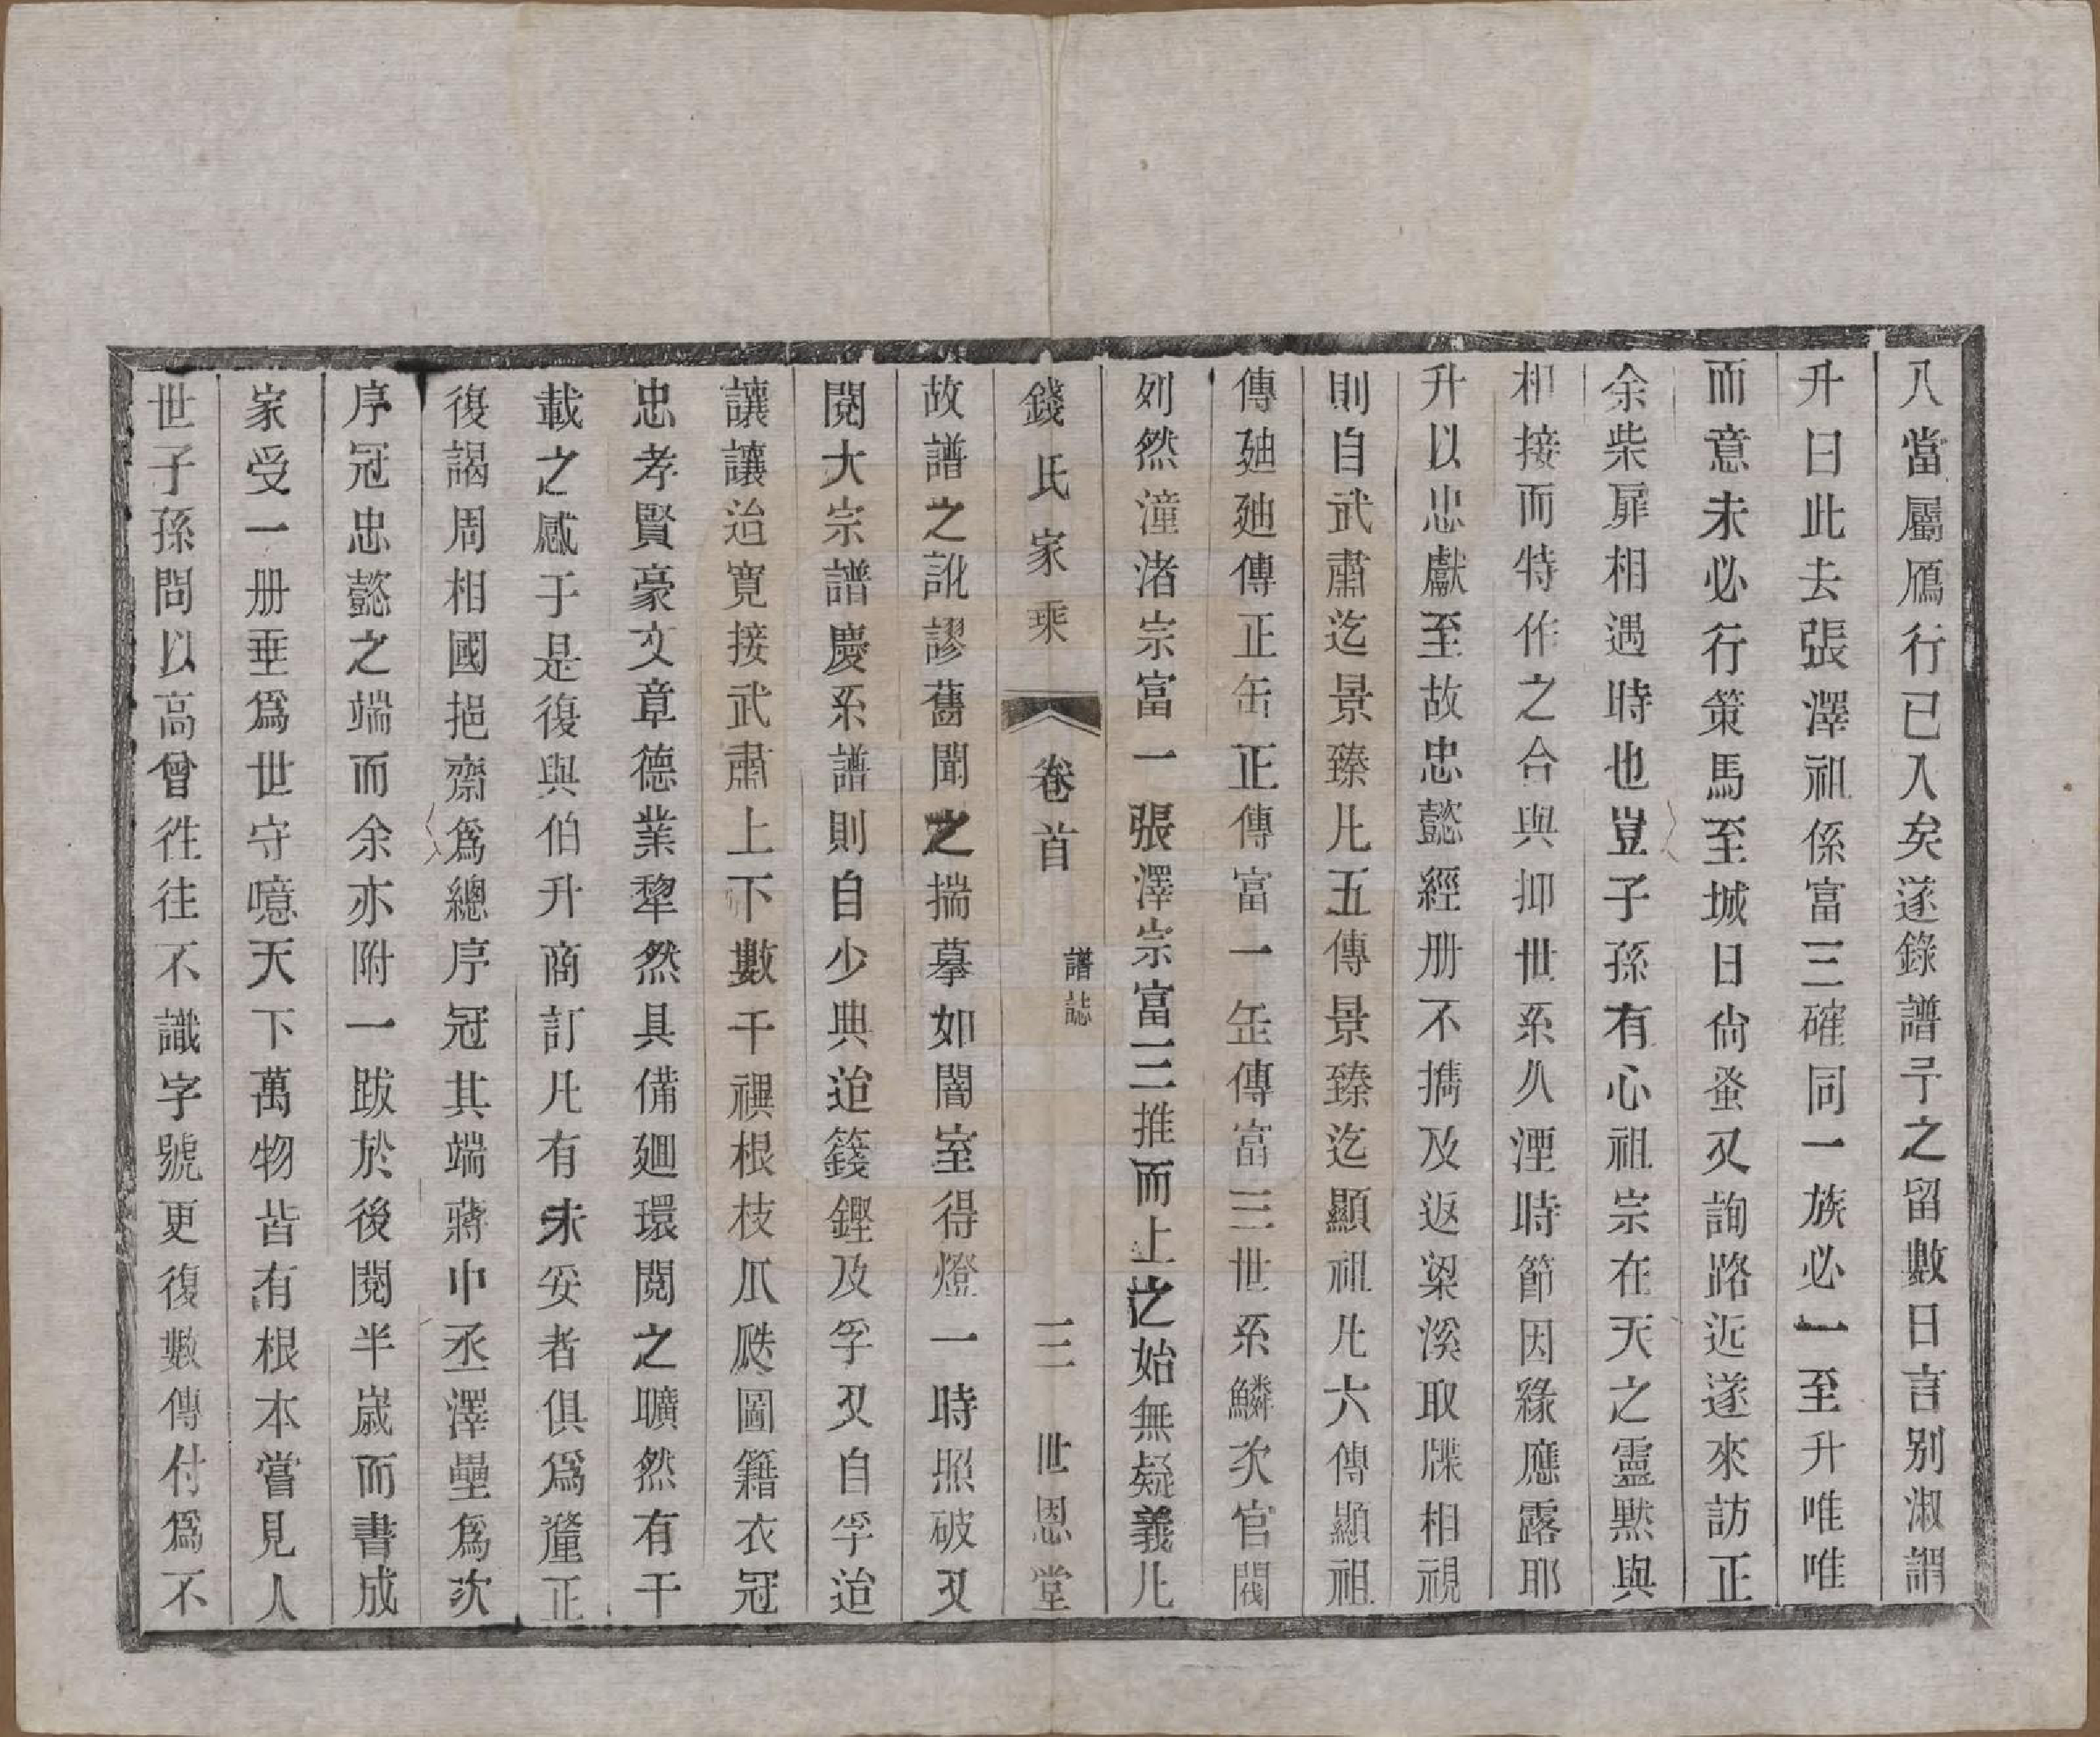 八當屬鴈行已入矣遂錄譜予之留數日言别淑謂
升曰此去張澤祖係富三確同一族必一至升唯唯
而意未必行策馬至城日尚蚤又詢路近遂來訪正
余柴扉相遇時也豈子孫有心祖宗在天之靈黙與
相接而特作之合與抑世系久湮時節因緣應露耶
升以忠獻至故忠懿經册不携及返梁溪取牒相視
則自武肅迄景臻凡五傳景臻迄顯祖凡六傳顯祖
傳廸廸傳正缶正傳富一缶傳富三世系鱗次官閥
列然潼渚宗富一張澤宗富三推而上之始無疑義凡
錢氏家乘 卷首 譜誌 三 世恩堂
故譜之訛謬舊聞之揣摹如闇室得燈一時照破又
閱大宗譜慶系譜則自少典迨籛鏗及孚又自孚迨
讓讓迨寛接武肅上下數千禩根枝瓜瓞圖籍衣冠
忠孝賢豪文章德業犂然具備廻環閱之曠然有千
載之感于是復與伯升商訂凡有未妥者俱爲釐正
復謁周相國挹齋爲總序冠其端蔣中丞澤壘爲次
序冠忠懿之端而余亦附一跋於後閱半歲而書成
家受一册垂爲世守噫天下萬物皆有根本嘗見人
世子孫問以高曾徃往不識字號更復數傳付爲不